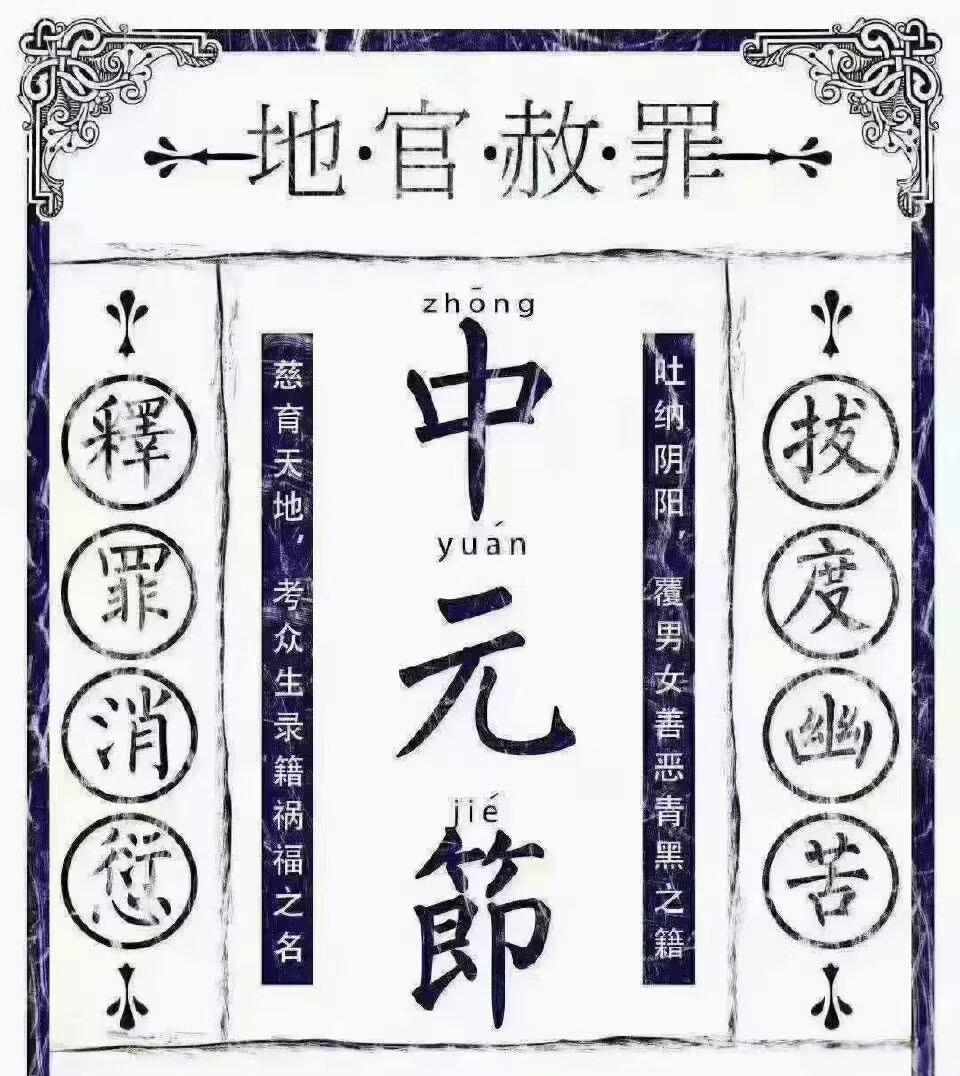 地·官·赦·罪
zhōng
中
yuán
元
jié
節
吐纳阴阳，覆男女善恶青黑之籍
慈育天地，考众生录籍祸福之名
拔度幽苦
釋罪消愆